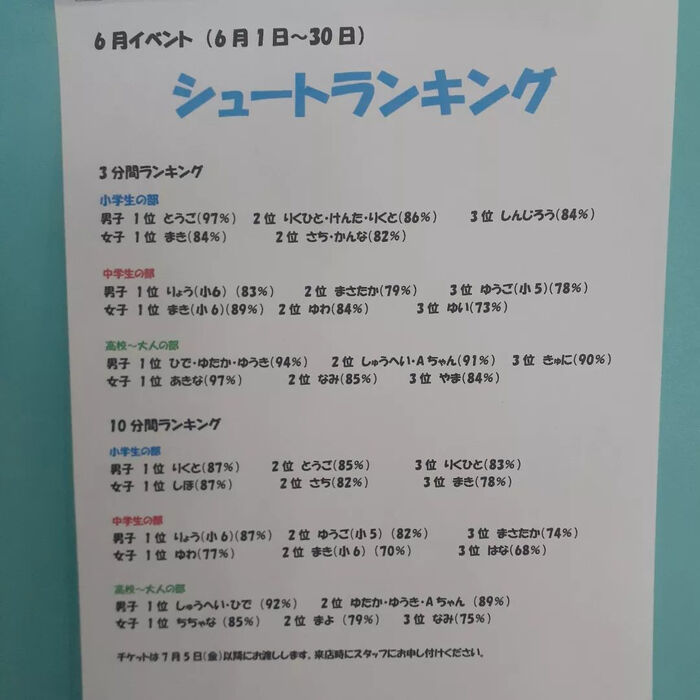 6月イベント（6月1日～30日）
シュートランキング
3分間ランキング
小学生の部
男子 1位 とうご(97%) 2位 りくひと・けんた・りくと(86%) 3位 しんじろう(84%)
女子 1位 まき(84%) 2位 さち・かんな(82%)
中学生の部
男子 1位 りょう(小6) (83%) 2位 まさたか(79%) 3位 ゆうご(小5)(78%)
女子 1位 まき(小6)(89%) 2位 ゆわ(84%) 3位 ゆい(73%)
高校～大人の部
男子 1位 ひで・ゆたか・ゆうき(94%) 2位 しゅうへい・Aちゃん(91%) 3位 きゅに(90%)
女子 1位 あきな(97%) 2位 なみ(85%) 3位 やま(84%)
10分間ランキング
小学生の部
男子 1位 りくと(87%) 2位 とうご(85%) 3位 りくひと(83%)
女子 1位 しほ(87%) 2位 さち(82%) 3位 まき(78%)
中学生の部
男子 1位 りょう(小6)(87%) 2位 ゆうご(小5) (82%) 3位 まさたか(74%)
女子 1位 ゆわ(77%) 2位 まき(小6) (70%) 3位 はな(68%)
高校～大人の部
男子 1位 しゅうへい・ひで (92%) 2位 ゆたか・ゆうき・Aちゃん (89%)
女子 1位 ちちゃな (85%) 2位 まよ (79%) 3位 なみ(75%)
チケットは7月5日(金)以降にお渡しします。来店時にスタッフにお申し付けください。